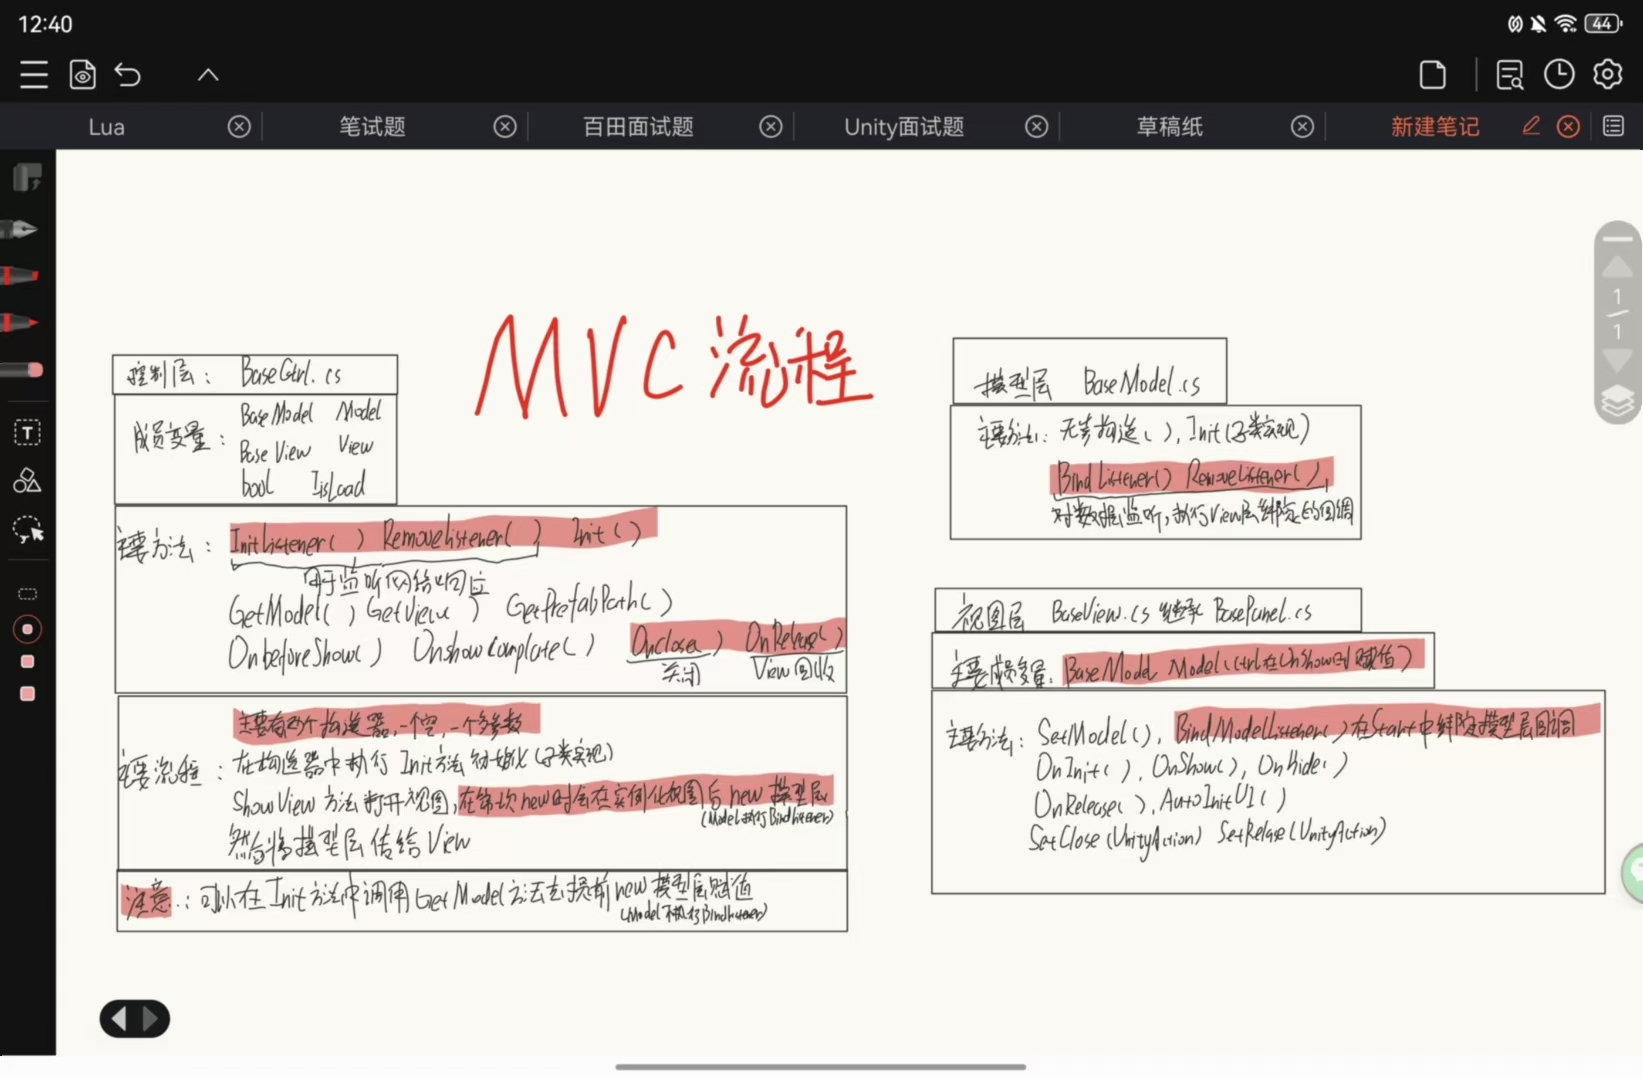 12:40
44
Lua
笔试题
百田面试题
Unity面试题
草稿纸
新建笔记
1
1
MVC流程
控制层： BaseCtrl.cs
成员变量： BaseModel Model
BaseView View
bool IsLoad
主要方法： InitListener() RemoveListener() Init()
用于监听网络响应
GetModel() GetView() GetPrefabPath()
OnbeforeShow() Onshowcomplate() Onclose() OnRelase()
关闭 View回收
主要流程： 主要有两个构造器，一个空，一个多参数
在构造器中执行Init方法初始化(子类实现)
ShowView方法打开视图，在第一次new时会在实例化视图后new模型层
(Model执行BindListener)
然后将模型层传给View
注意：可以在Init方法中调用GetModel方法去提前new模型层赋值
(Model不执行BindListener)
模型层 BaseModel.cs
主要方法：无参构造()，Init(子类实现)
BindListener() RemoveListener()，
对数据监听，执行View层绑定的回调
视图层 BaseView.cs 继承 BasePanel.cs
主要成员变量：BaseModel Model(Ctrl在OnShow时赋值)
主要方法：SetModel()，BindModelListener()在Start中绑定模型层回调
OnInit()，OnShow()，OnHide()
OnRelease()，AutoInitUI()
SetClose(UnityAction) SetRelase(UnityAction)